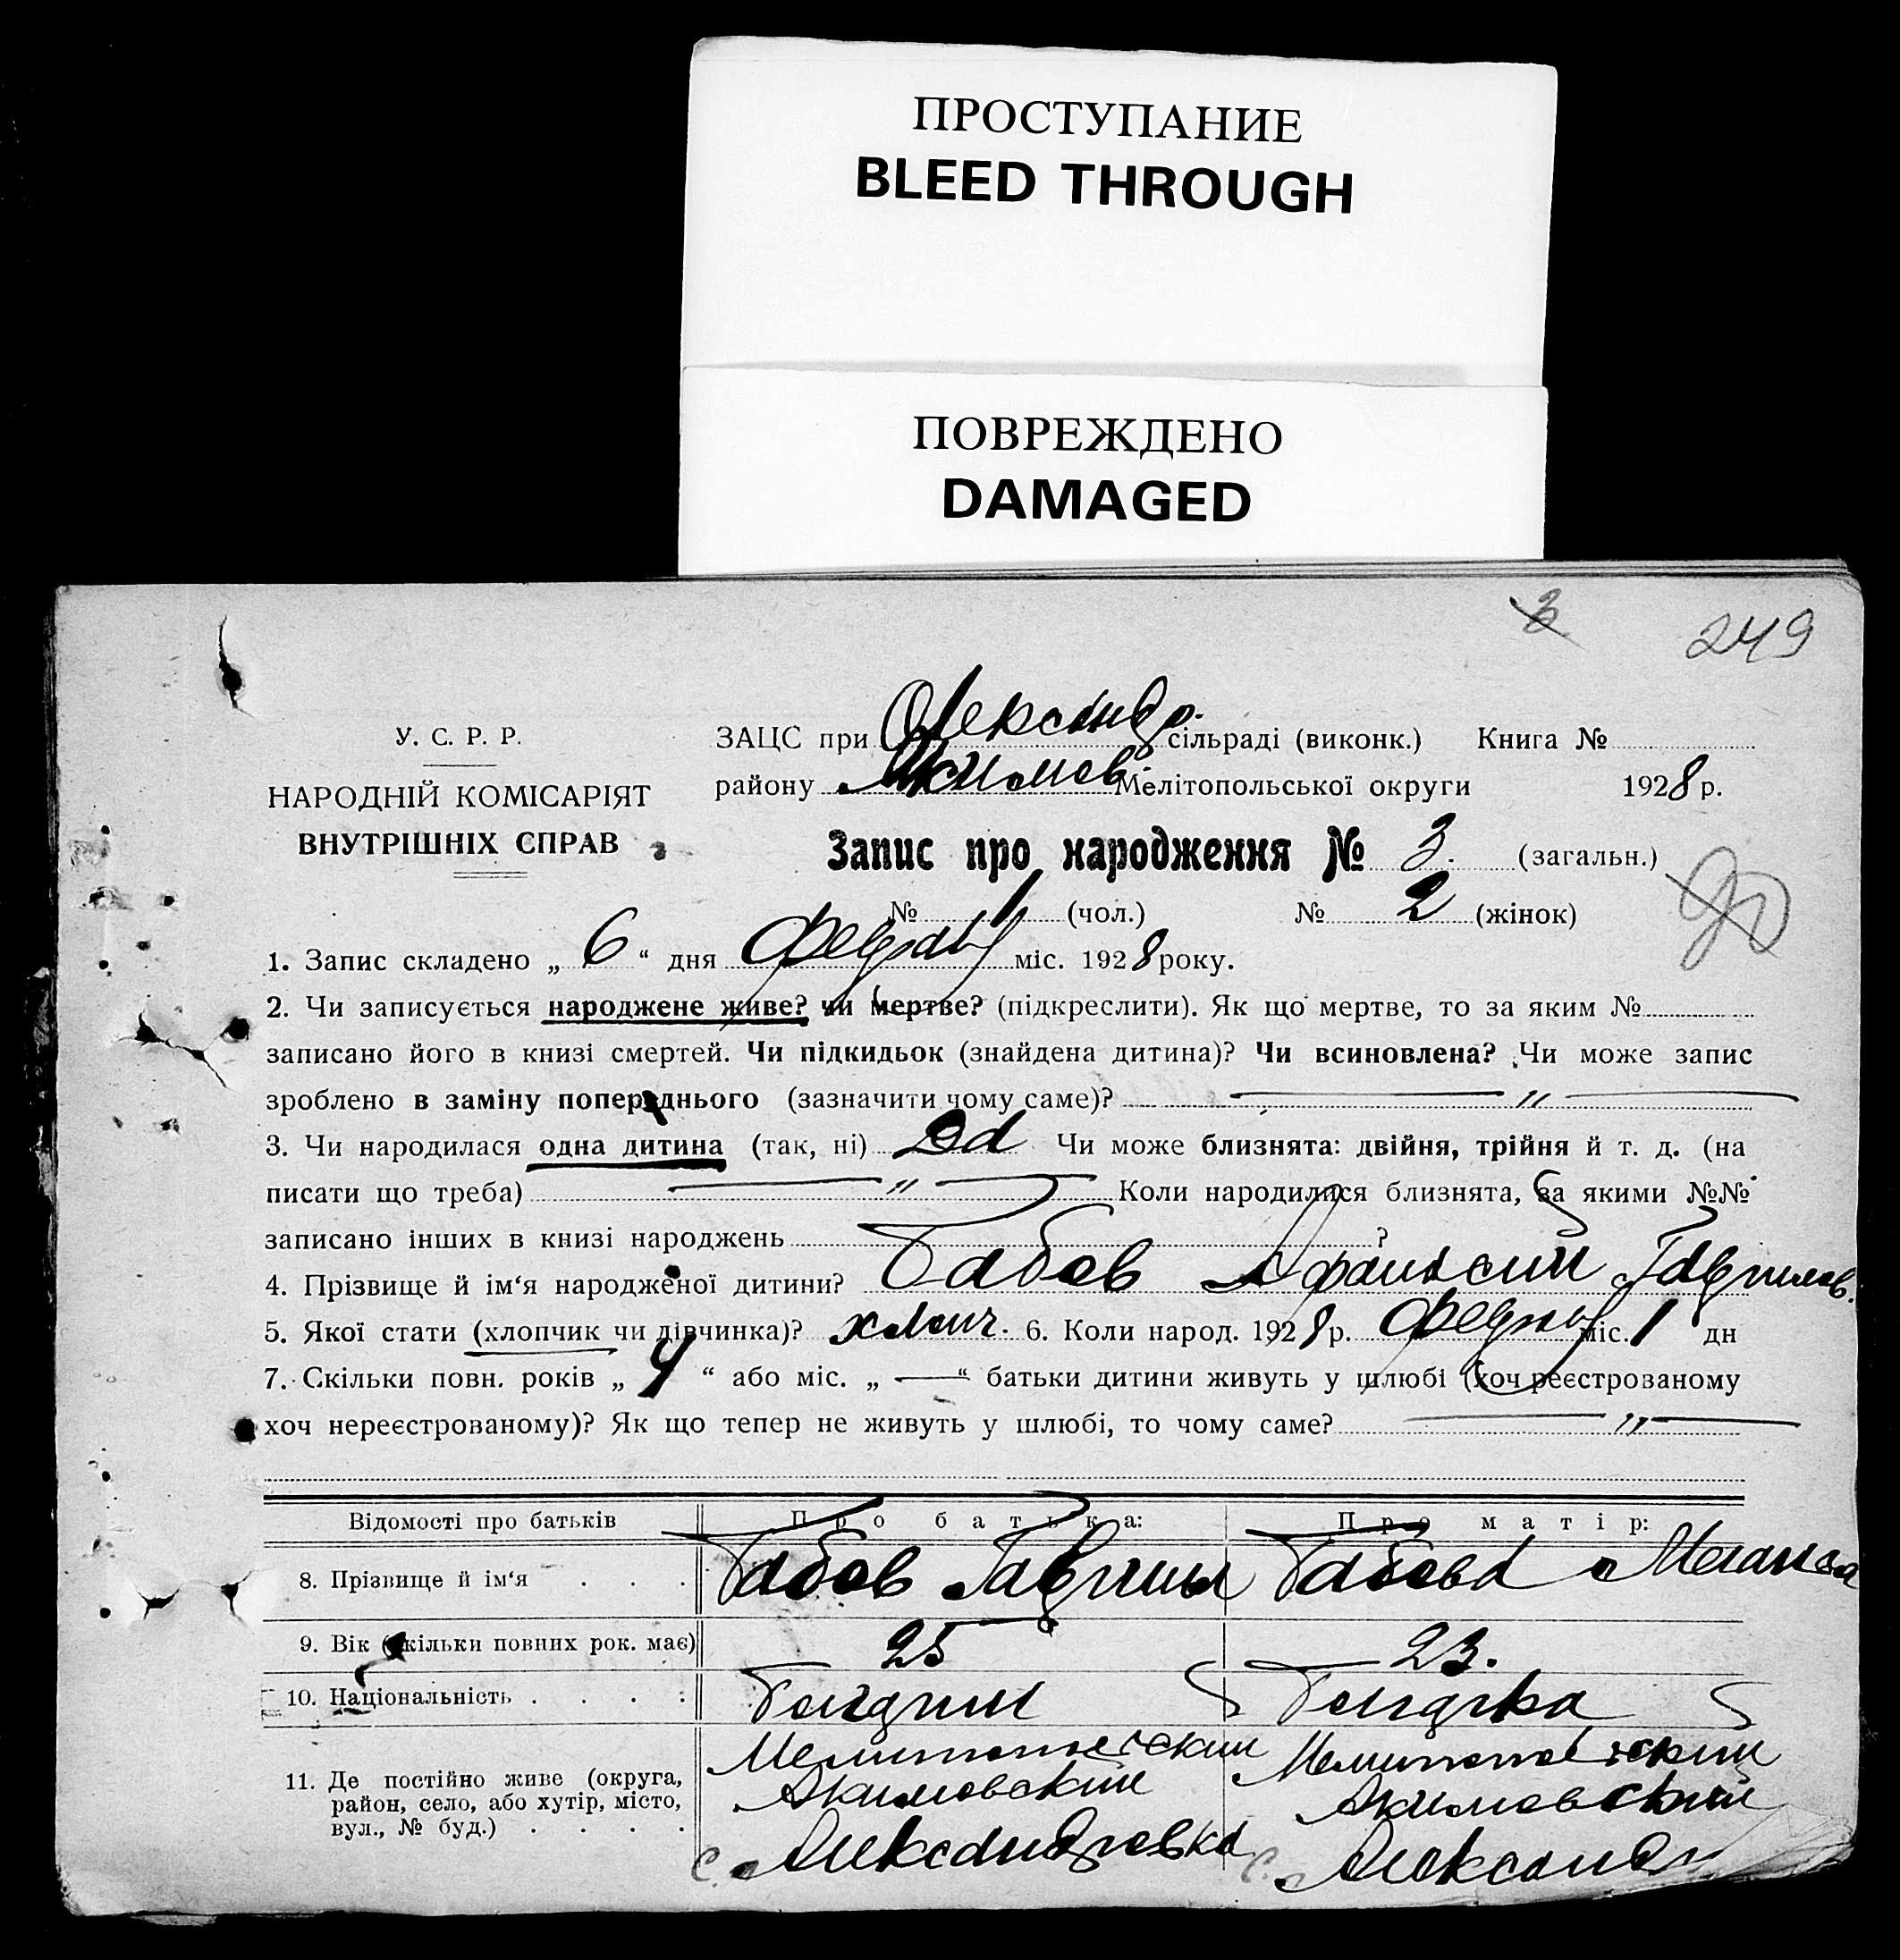 ПРОСТУПАНИЕ
BLEED THROUGH
ПОВРЕЖДЕНО
DAMAGED
3
249
У. С. Р. Р.
НАРОДНІЙ КОМІСАРІЯТ
ВНУТРІШНІХ СПРАВ
ЗАЦС при Олександр. сільраді (виконк.) Книга №
району Якимов. Мелітопольської округи 1928 р.
Запис про народження № 3. (загальн.)
90
№ 1 (чол.) № 2 (жінок)
1. Запис складено „ 6 “ дня февраля міс. 1928 року.
2. Чи записується народжене живе? чи мертве? (підкреслити). Як що мертве, то за яким №
записано його в книзі смертей. Чи підкидьок (знайдена дитина)? Чи всиновлена? Чи може запис
зроблено в заміну попереднього (зазначити чому саме)? — „ —
3. Чи народилася одна дитина (так, ні) Чи може близнята: двійня, трійня й т. д. (на
писати що треба) — „ — Коли народилися близнята, за якими №№
записано інших в книзі народжень ?
4. Прізвище й ім‘я народженої дитини? Бабов Афанасий Гаврилов.
5. Якої стати (хлопчик чи дівчинка)? хлопч. 6. Коли народ. 1928 р. февраля міс. 1 дн
7. Скільки повн. років „ 4 “ або міс. „ — “ батьки дитини живуть у шлюбі (хоч реєстрованому
хоч нереєстрованому)? Як що тепер не живуть у шлюбі, то чому саме? — „ —
Відомості про батьків Про батька: Про матір:
8. Прізвище й ім‘я . . . Бабов Гавриил Бабова
9. Вік (скільки повних рок. має) 25 23.
10. Національність . . . . Болгарин Болгарка
11. Де постійно живе (округа,
район, село, або хутір, місто,
вул., № буд.) . . . .
Мелитопольский
Акимовский
с. Александровка
Мелитопольский
Акимовский
с. Александр